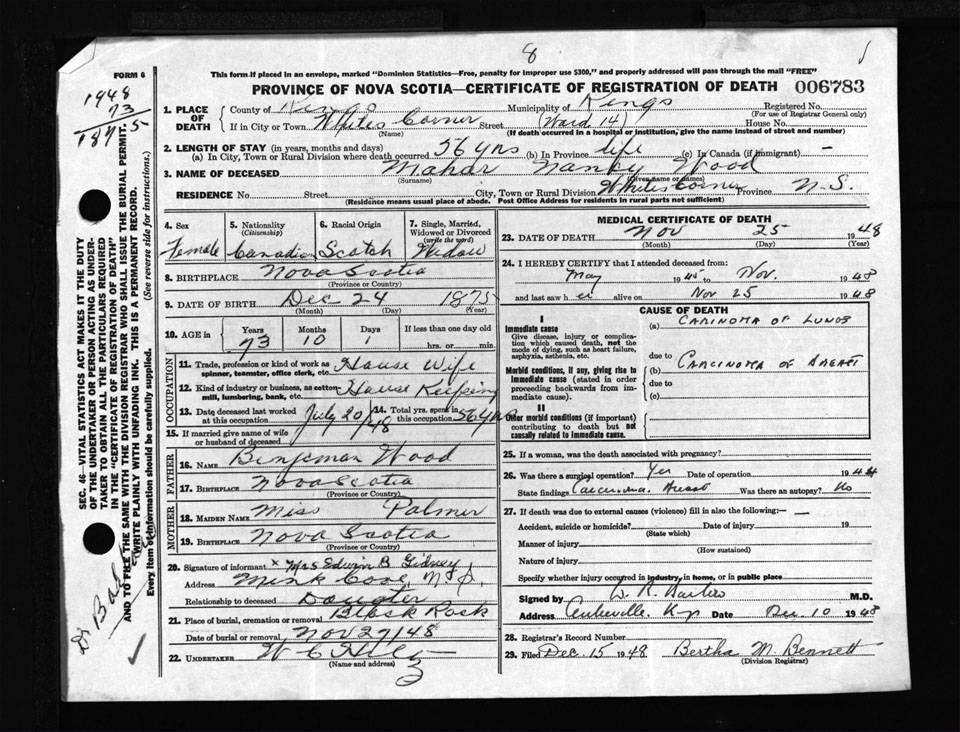 8
FORM 6
1948
73
1875
This form if placed in an envelope, marked "Dominion Statistics—Free, penalty for improper use $300," and properly addressed will pass through the mail "FREE"
PROVINCE OF NOVA SCOTIA—CERTIFICATE OF REGISTRATION OF DEATH 006783
1. PLACE OF DEATH
County of Kings Municipality of Kings Registered No.
(For use of Registrar General only)
If in City or Town Whites Corner Street (Ward 14) House No.
(Name) (If death occurred in a hospital or institution, give the name instead of street and number)
2. LENGTH OF STAY (in years, months and days)
(a) In City, Town or Rural Division where death occurred 56 yrs (b) In Province life (c) In Canada (if immigrant) —
3. NAME OF DECEASED Mahar Nancy Wood
(Surname) (Given name or names)
RESIDENCE No. Street City, Town or Rural Division Whites Corner Province N.S.
(Residence means usual place of abode. Post Office Address for residents in rural parts not sufficient)
4. Sex
Female
5. Nationality
(Citizenship)
Canadian
6. Racial Origin
Scotch
7. Single, Married, Widowed or Divorced
(write the word)
Widow
8. BIRTHPLACE Nova Scotia
(Province or Country)
9. DATE OF BIRTH Dec 24 1875
(Month) (Day) (Year)
10. AGE in Years Months Days If less than one day old
73 10 1 hrs. or min.
OCCUPATION
11. Trade, profession or kind of work as spinner, teamster, office clerk, etc. House Wife
12. Kind of industry or business, as cotton mill, lumbering, bank, etc. House Keeping
13. Date deceased last worked at this occupation July 20/48
14. Total yrs. spent in this occupation 56 yrs
15. If married give name of wife or husband of deceased
FATHER
16. NAME Binjeman Wood
17. BIRTHPLACE Nova Scotia
(Province or Country)
MOTHER
18. MAIDEN NAME Miss Palmer
19. BIRTHPLACE Nova Scotia
(Province or Country)
20. Signature of informant x Mrs Edwin B. Gidney
Address Mink Cove, N.S.
Relationship to deceased Dougter
21. Place of burial, cremation or removal Black Rock
Date of burial or removal Nov 27/48
22. UNDERTAKER W C
(Name and address)
MEDICAL CERTIFICATE OF DEATH
23. DATE OF DEATH Nov 25 1948
(Month) (Day) (Year)
24. I HEREBY CERTIFY that I attended deceased from:
May 1945 to Nov. 1948
and last saw her alive on Nov 25 1948
CAUSE OF DEATH
I
Immediate cause
Give disease, injury or complication which caused death, not the mode of dying, such as heart failure, asphyxia, asthenia, etc.
(a) CARINOMA OF LUNGS
due to
Morbid conditions, if any, giving rise to immediate cause (stated in order proceeding backwards from immediate cause).
(b) CARCINOMA OF BREAST
due to
(c)
II
Other morbid conditions (if important) contributing to death but not causally related to immediate cause.
25. If a woman, was the death associated with pregnancy?
26. Was there a surgical operation? Yes Date of operation 1944
State findings Carcinoma. Breast Was there an autopsy? No
27. If death was due to external causes (violence) fill in also the following:— —
Accident, suicide or homicide? Date of injury 19
(State which)
Manner of injury
(How sustained)
Nature of injury
Specify whether injury occurred in industry, in home, or in public place
Signed by W. R. M.D.
Address Date Dec 10 1948
28. Registrar's Record Number
29. Filed Dec. 15 1948 Bertha M. Bennett
(Division Registrar)
SEC. 46—VITAL STATISTICS ACT MAKES IT THE DUTY
OF THE UNDERTAKER OR PERSON ACTING AS UNDERTAKER TO OBTAIN ALL THE PARTICULARS REQUIRED
IN THE "CERTIFICATE OF REGISTRATION OF DEATH"
AND TO FILE THE SAME WITH THE DIVISION REGISTRAR WHO SHALL ISSUE THE BURIAL PERMIT.
WRITE PLAINLY WITH UNFADING INK. THIS IS A PERMANENT RECORD.
Every item of information should be carefully supplied. (See reverse side for instructions.)